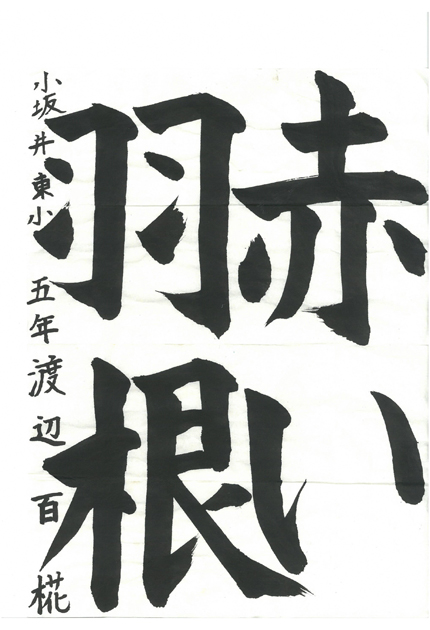 赤い
羽根
小坂井東小 五年 渡辺百椛